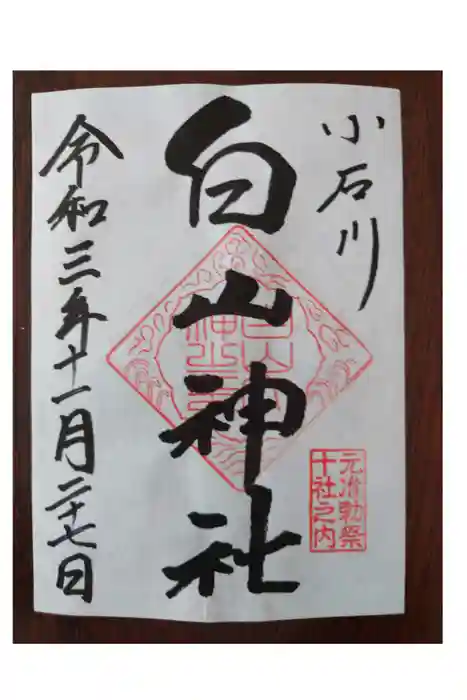 小石川
元准勅祭
十社之内
白山神社
令和三年十一月二十七日